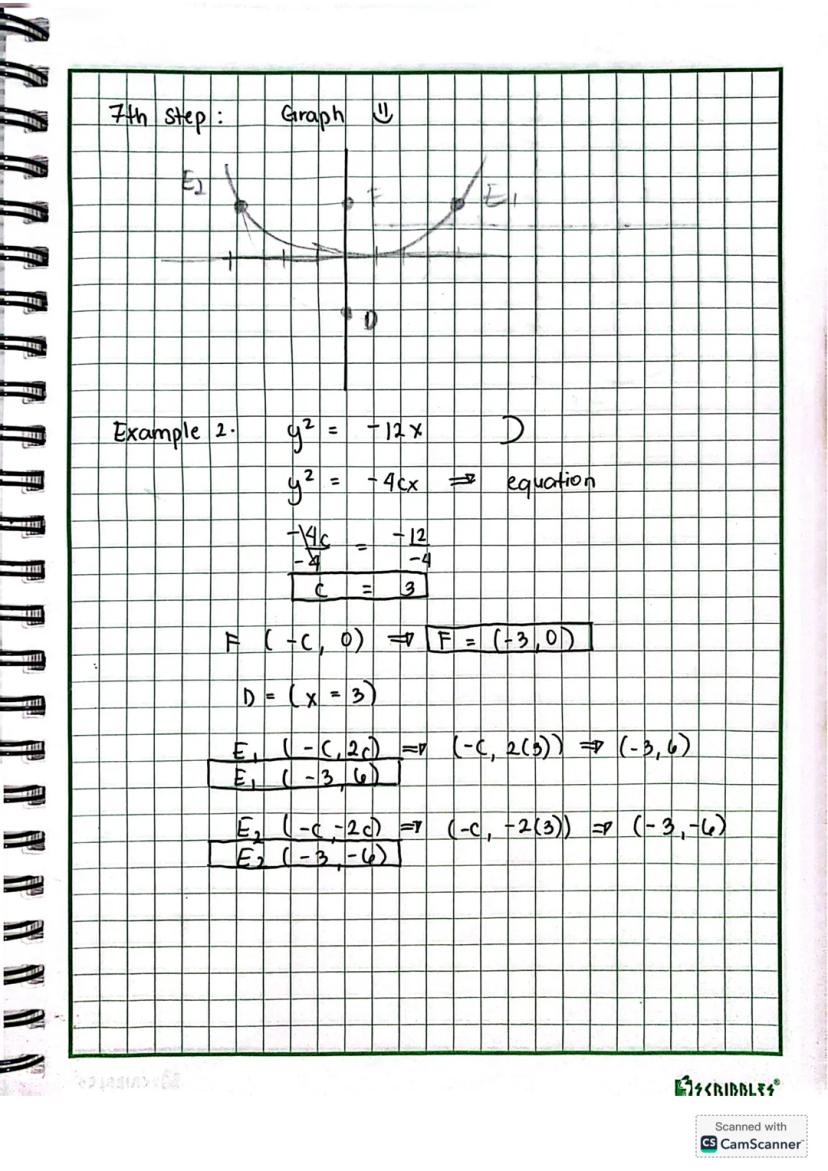 7th step : Graph
E2 F E1
D
Example 2. y² = -12x
y² = -4cx ⇒ equation
-4c/-4 = -12/-4
c = 3
F (-c, 0) ⇒ F = (-3, 0)
D = (x = 3)
E₁ (-c, 2c) ⇒ (-c, 2(3)) ⇒ (-3, 6)
E₁ (-3, 6)
E₂ (-c, -2c) ⇒ (-c, -2(3)) ⇒ (-3, -6)
E₂ (-3, -6)
SCRIBBLES®
Scanned with
CS CamScanner